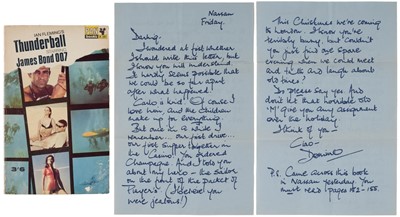 IAN FLEMING'S
Thunderball
James Bond 007
3'6
Nassau
Friday.
Darling,
I wondered at first whether
I should write this letter, but
I know you will understand.
It hardly seems possible that
we could be so far apart
after what happened!
Carlo is kind. Of course I
love him, and the children
make up for everything.
But once in a while I
remember — our first drive,
our first supper together in
the Casino. You ordered
Champagne. And I told you
about my hero — the Sailor
on the front of the Packet of
Players! (I believe you
were jealous!)
This Christmas we're coming
to London. I know you're
terribly busy, but couldn't
you just find one spare
evening when we could meet
and talk and laugh about
old times?
Do please say yes! And
don't let that horrible old
'M' give you any assignment
over the holiday.
Think of you —
Ciao —
Domino
P.S. Came across this book
in Nassau yesterday. You
must read pages 152-155.